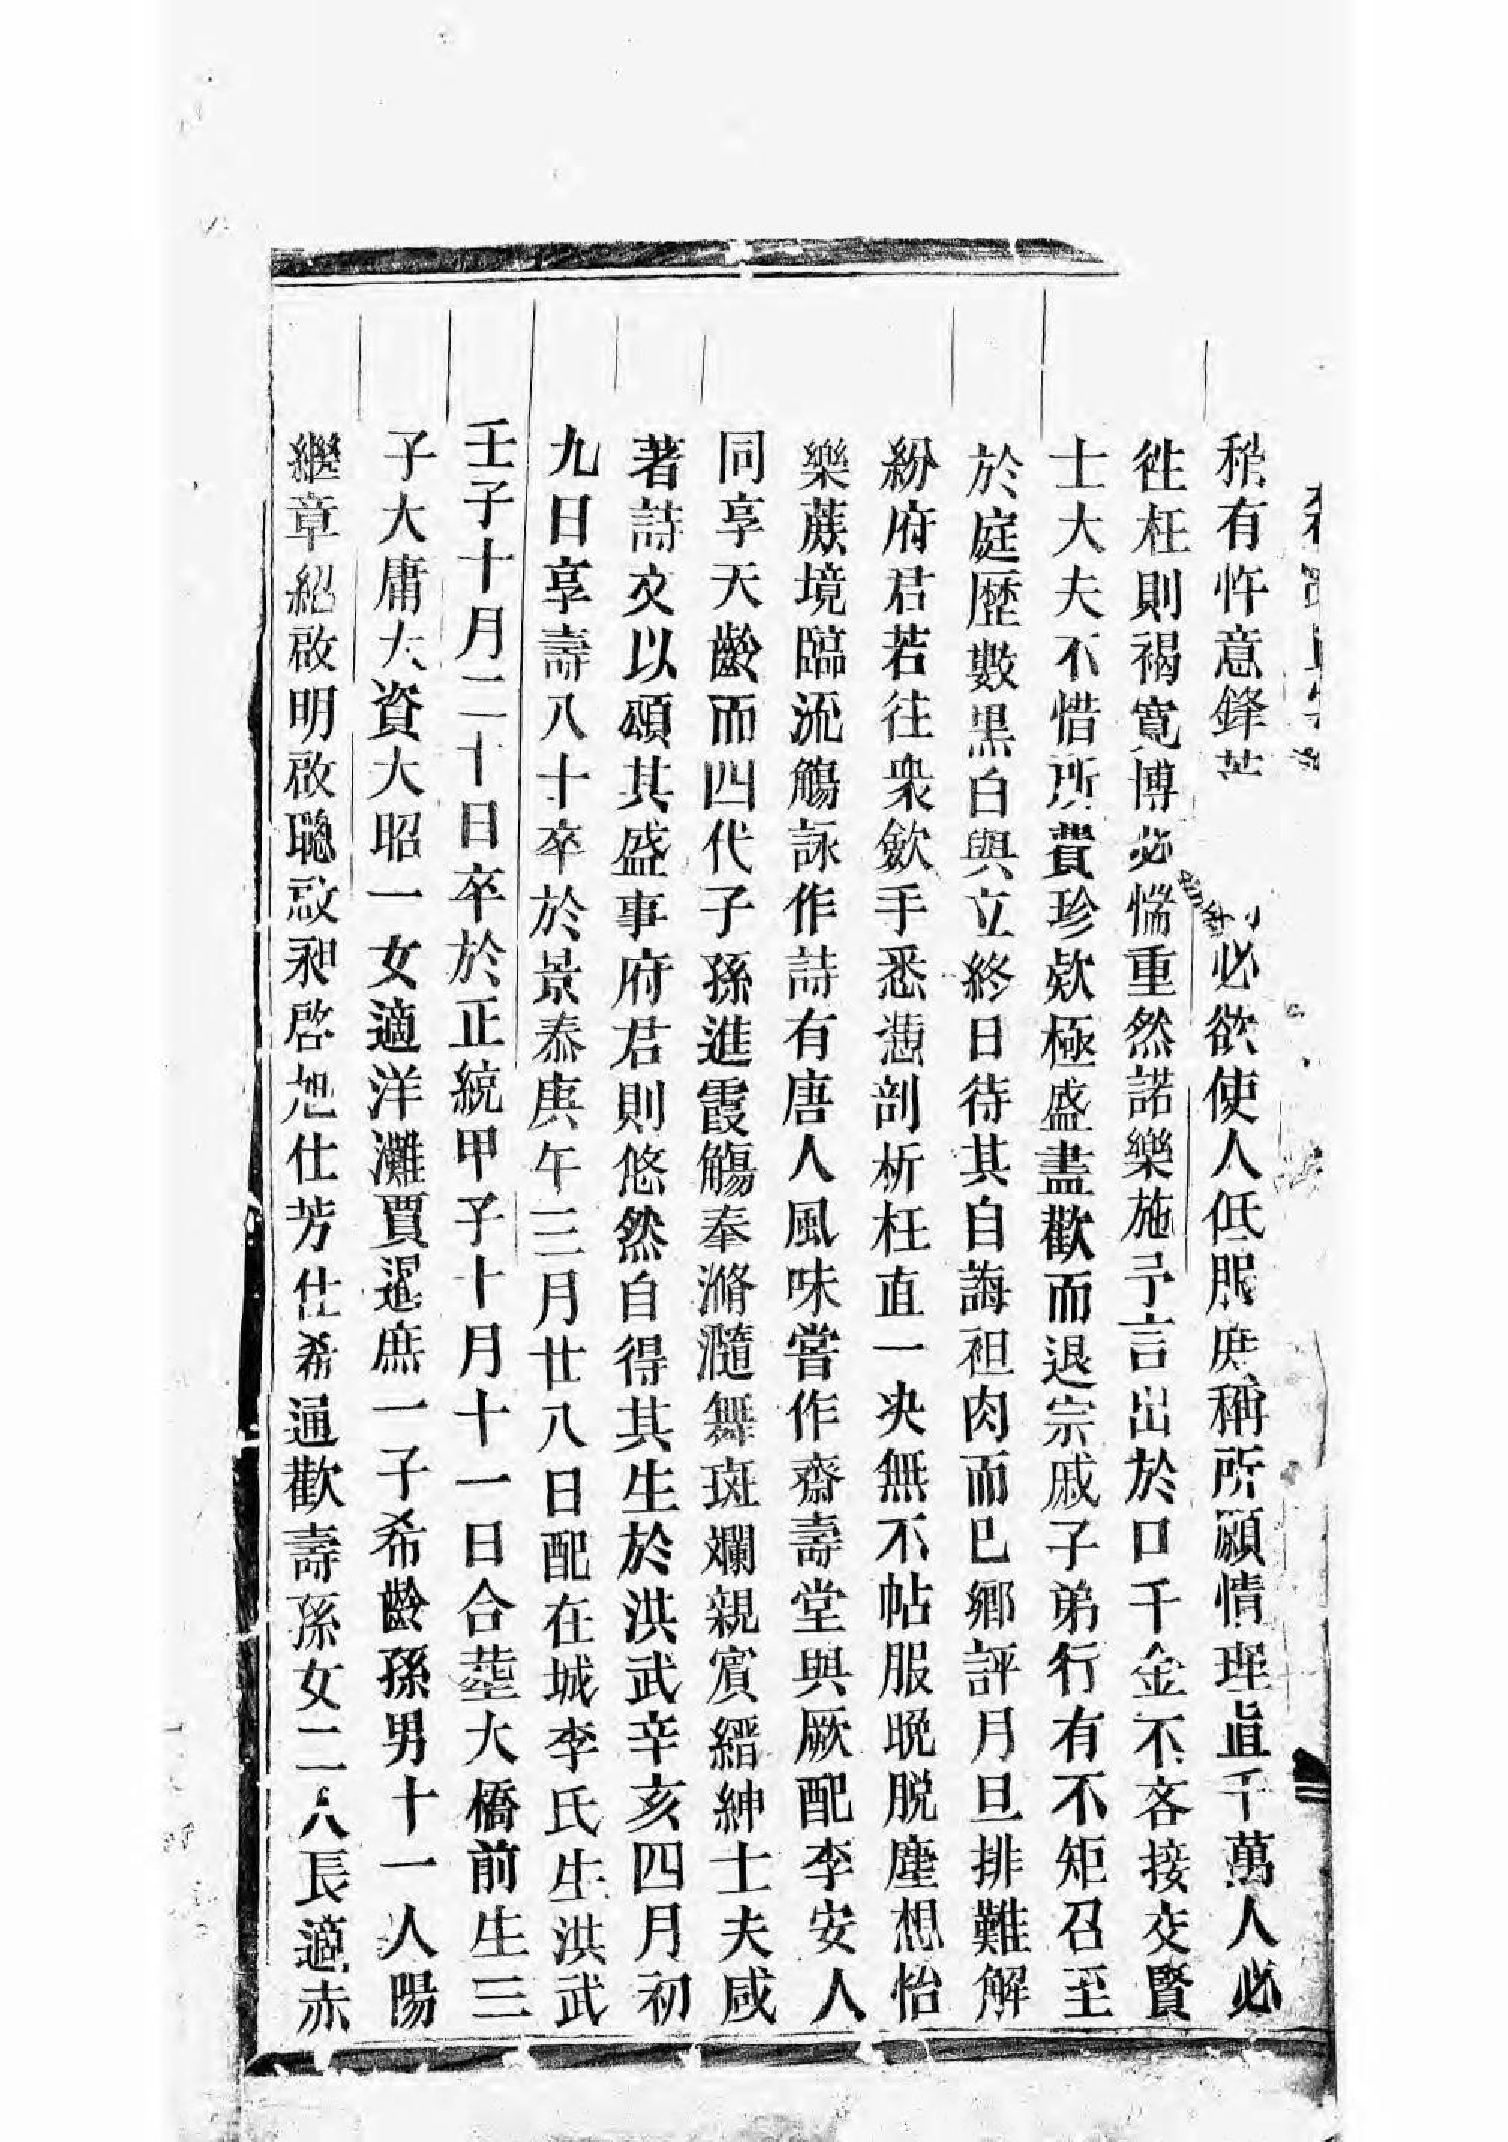 稍有忤意鋒芒必欲使人低服庶稱所願情理直千萬人必
徃枉則褐寬博必惴重然諾樂施予言出於口千金不吝接交賢
士大夫不惜所費珍欵極盛盡歡而退宗戚子弟行有不矩召至
於庭歷數黑白與立終日待其自誨袒肉而已鄉評月旦排難解
紛府君若往衆歛手悉慿剖析枉直一决無不帖服晩脱塵想怡
樂蔗境臨流觴詠作詩有唐人風味嘗作齋壽堂與厥配李安人
同享天齡而四代子孫進霞觴奉滫瀡舞斑斕親賓縉紳士夫咸
著詩文以頌其盛事府君則悠然自得其生於洪武辛亥四月初
九日享壽八十卒於景泰庚午三月廿八日配在城李氏生洪武
壬子十月二十日卒於正統甲子十月十一日合塟大橋前生三
子大庸大資大昭一女適洋灘賈暹庶一子希齡孫男十一人陽
繼章紹啟明啟聰啟昶啓旭仕芳仕希通歡壽孫女二人長適赤